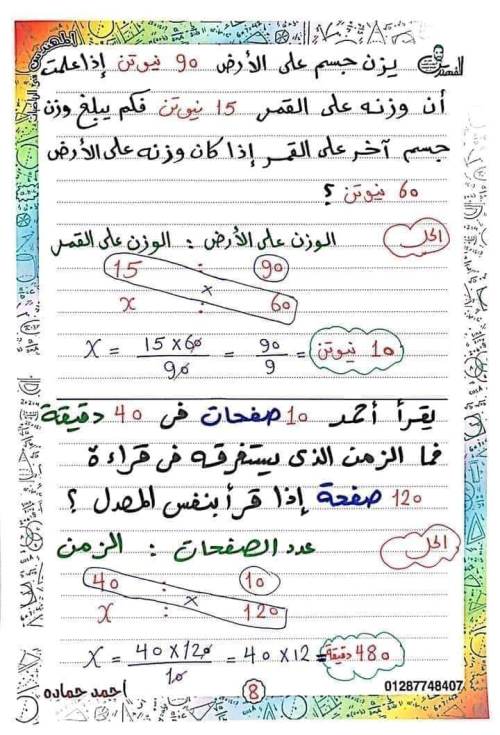 المهندس في الرياضيات
يزن جسم على الأرض 90 نيوتن إذا علمت
أن وزنه على القمر 15 نيوتن فكم يبلغ وزن
جسم آخر على القمر إذا كان وزنه على الأرض
60 نيوتن ؟
الحل
الوزن على الأرض : الوزن على القمر
90 : 15
60 : x
x
X = 15 x 60 / 90 = 90 / 9 = 10 نيوتن
يقرأ أحمد 10 صفحات فى 40 دقيقة
فما الزمن الذى يستغرقه فى قراءة
120 صفحة إذا قرأ بنفس المعدل ؟
الحل
عدد الصفحات : الزمن
10 : 40
120 : x
x
X = 40 x 120 / 10 = 40 x 12 = 480 دقيقة
احمد حماده
8
01287748407